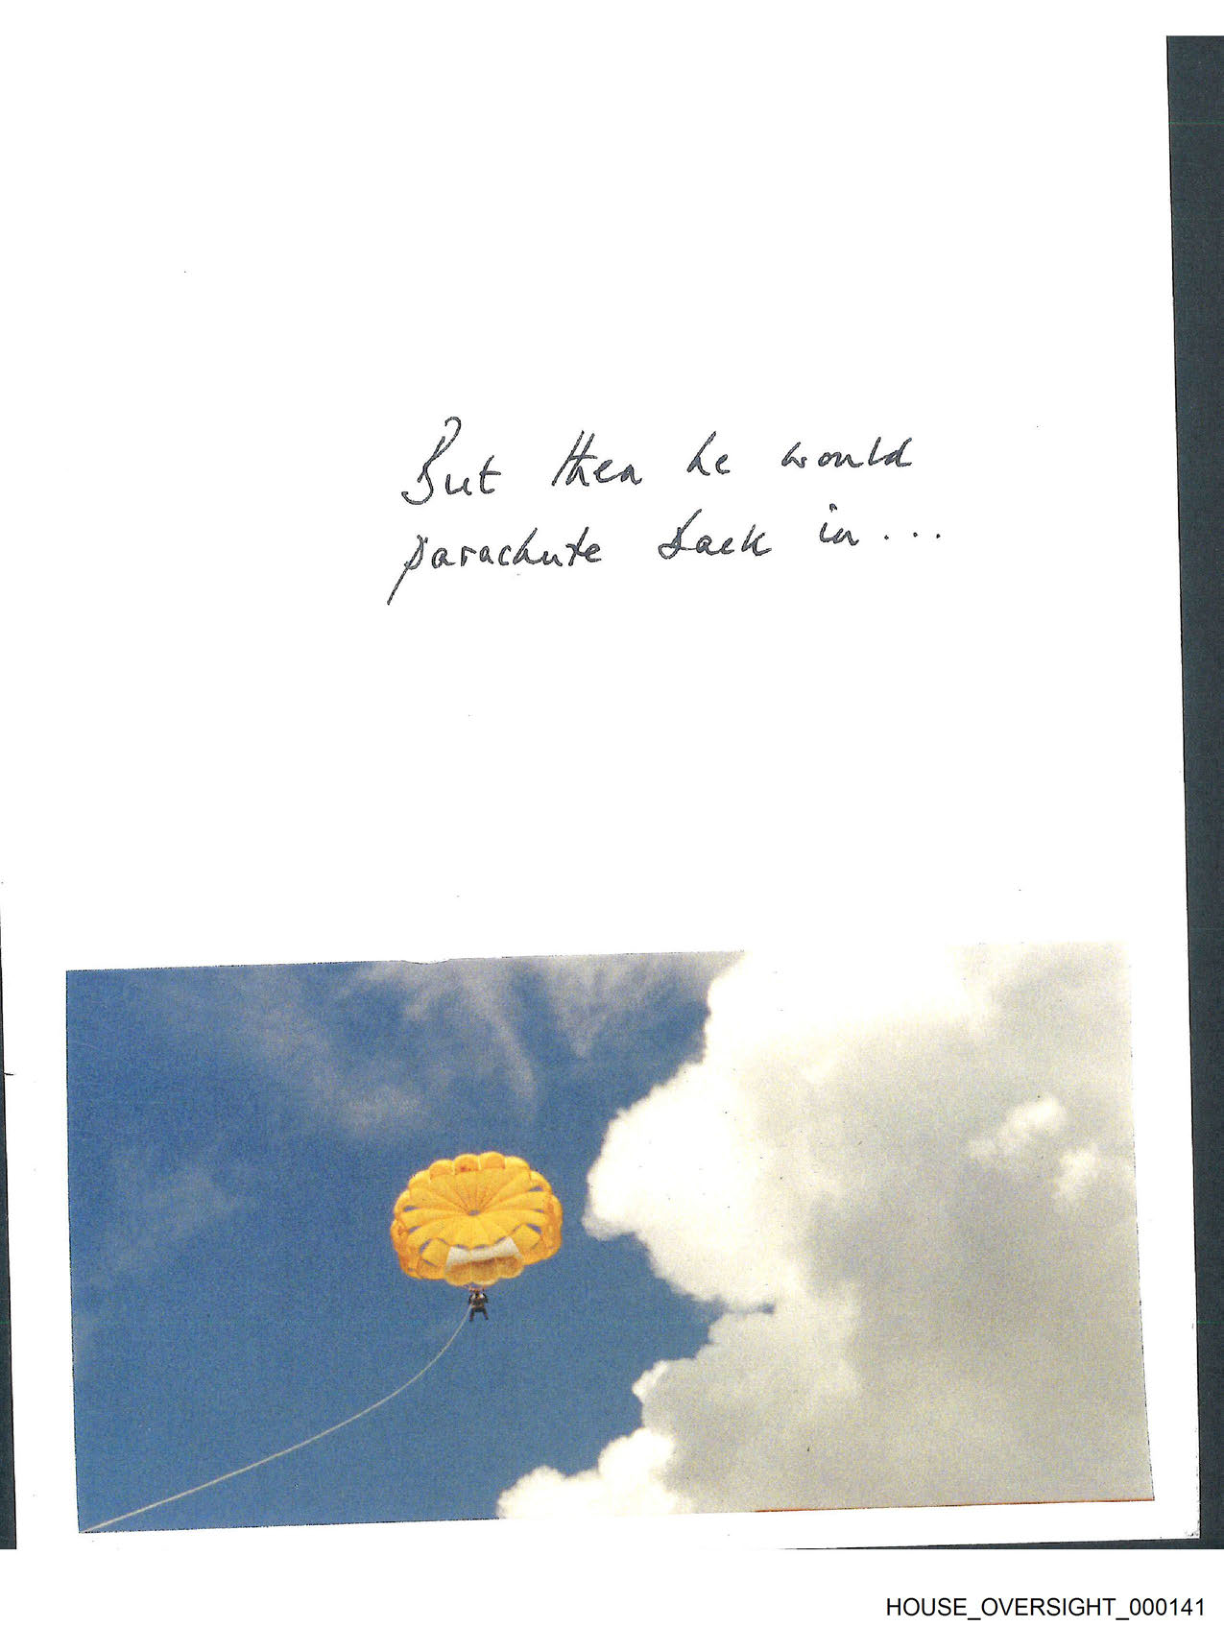 But then he would
parachute back in...
HOUSE_OVERSIGHT_000141